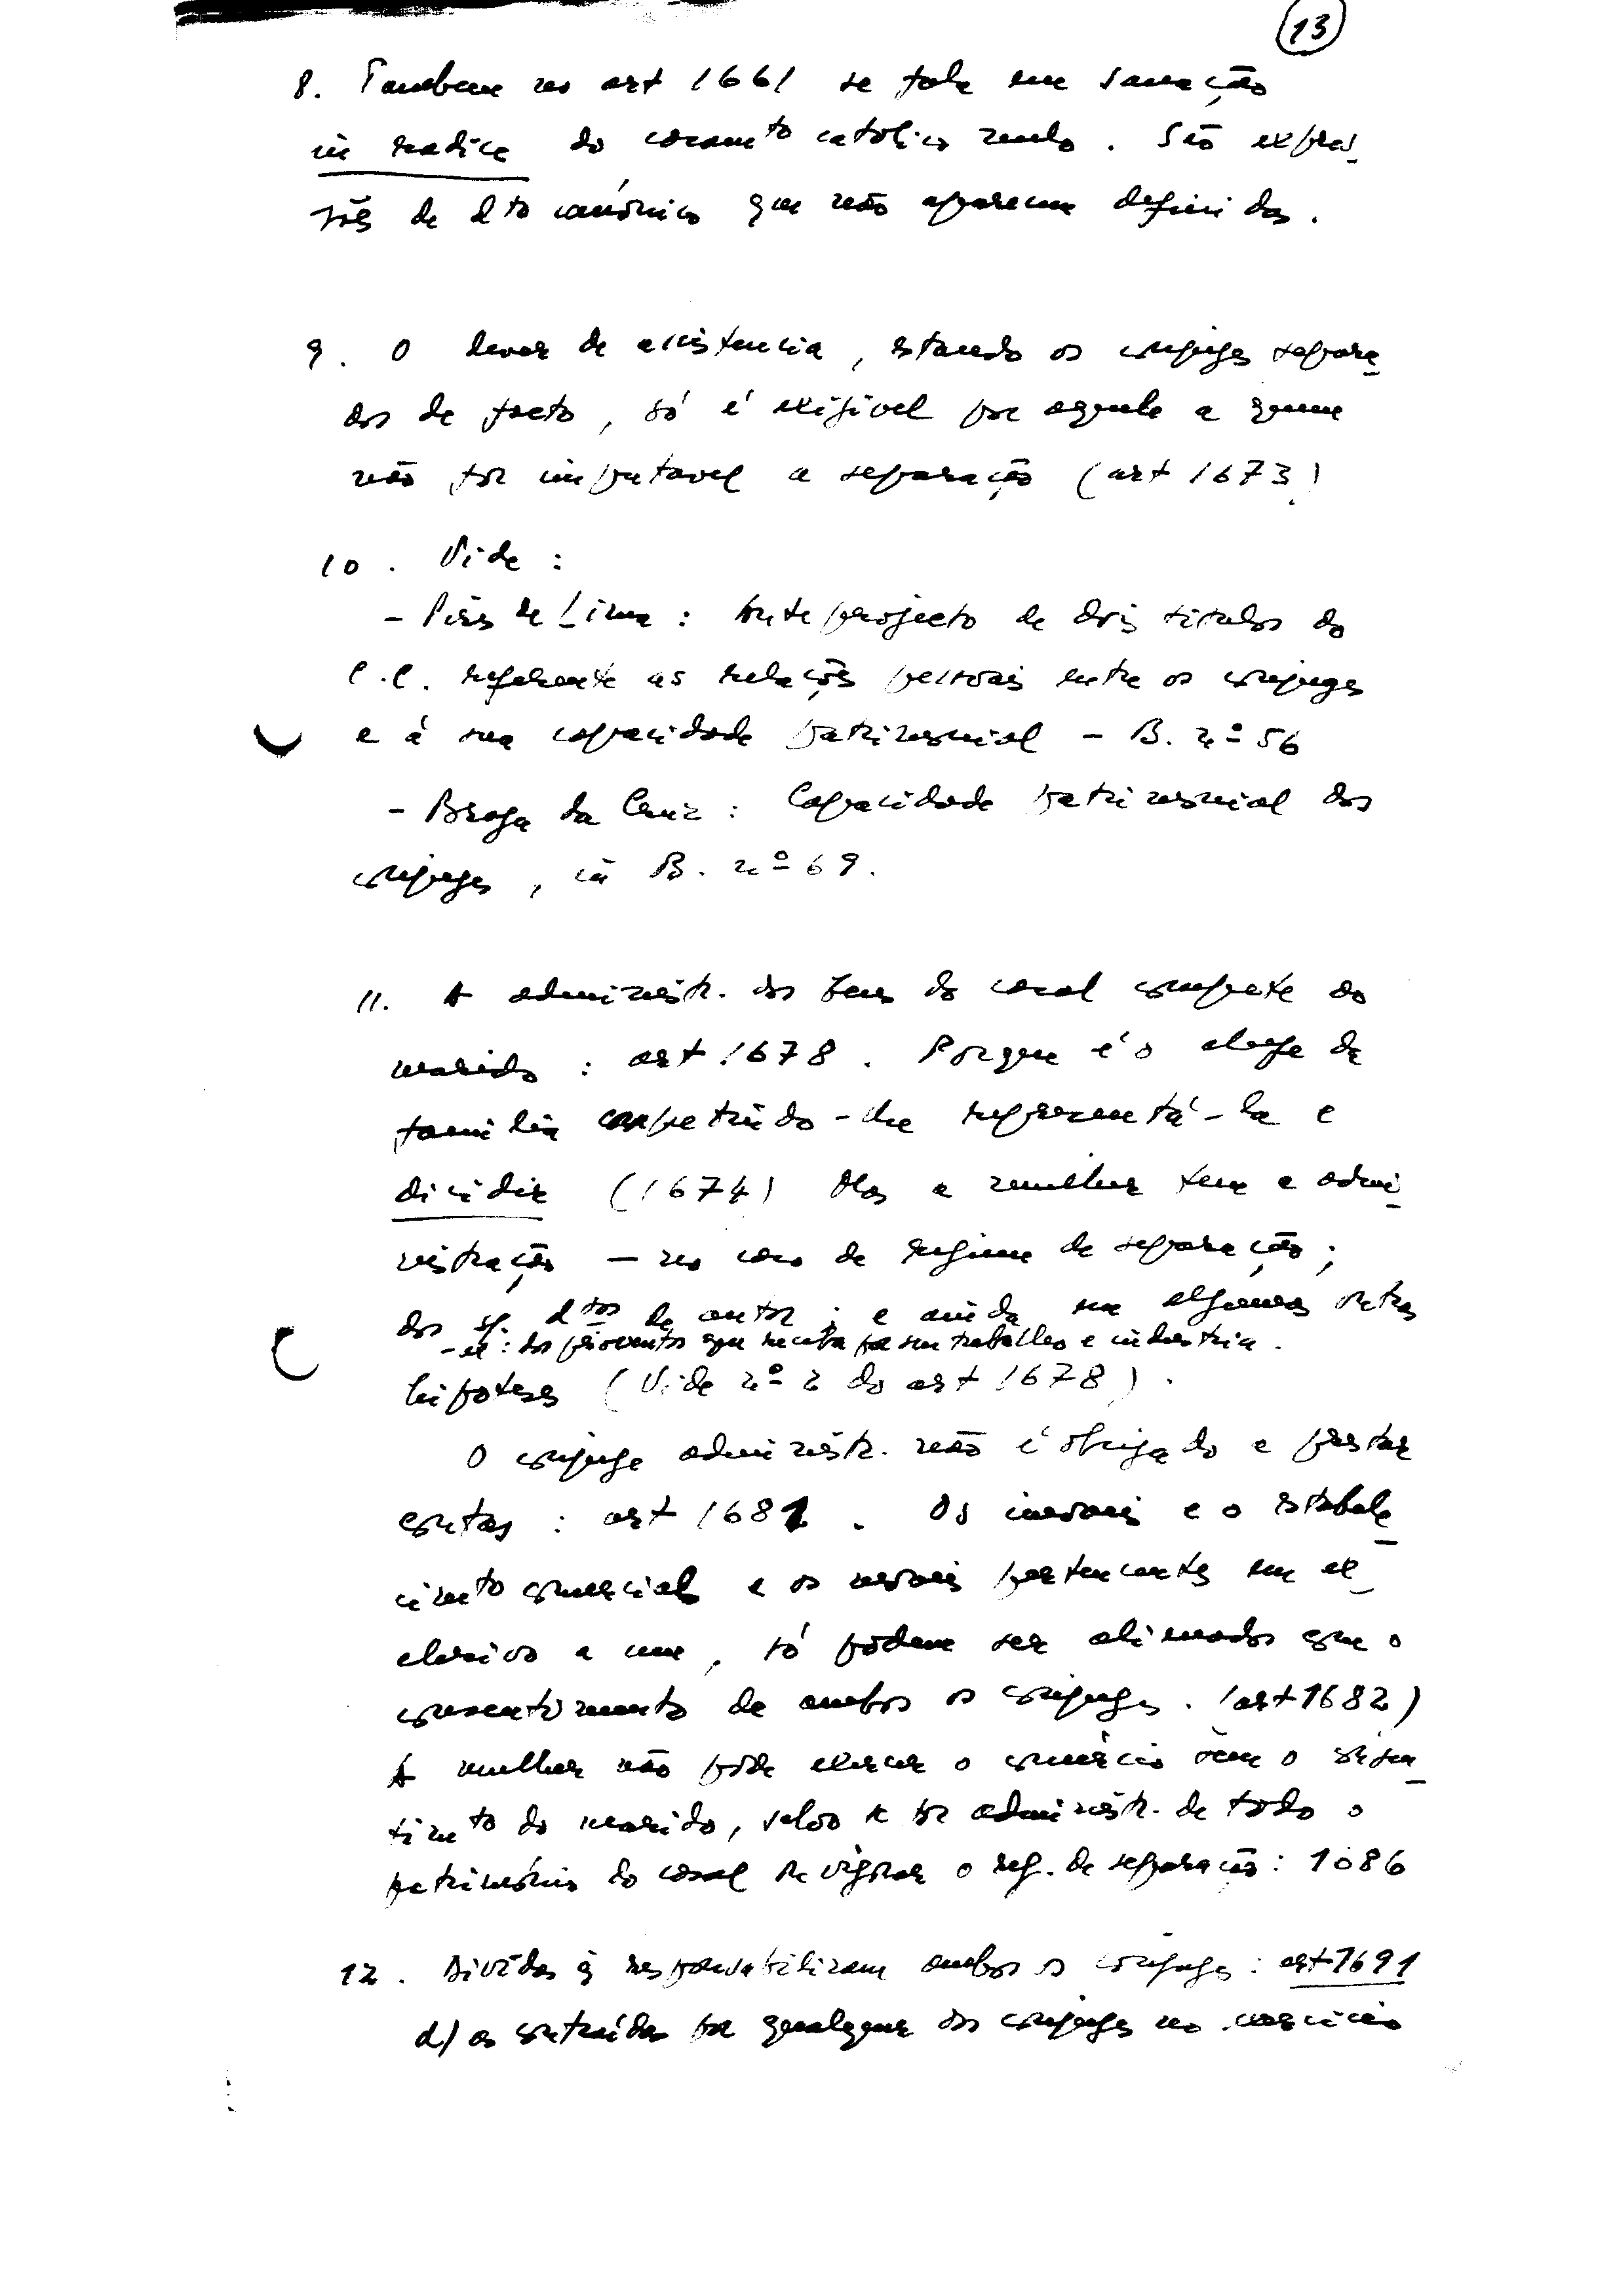 13
8. Tambem no art 1661 se fala em sanação
in radice do casamto católico nulo. São expres-
sões de dto canónico que não aparecem definidas.
9. O dever de assistencia, estando os conjuges separa-
dos de facto, só é exigivel por aquele a quem
não for imputavel a separação (art 1673)
10. Vide:
- Pires de Lima: Anteprojecto de dois titulos do
C.C. referente as relações pessoais entre os conjuges
e á sua capacidade patrimonial - B. nº 56
- Braga da Cruz: Capacidade patrimonial dos
conjuges, in B. nº 69.
11. A administr. dos bens do casal compete ao
marido: art 1678. Porque é o chefe da
familia competindo-lhe representá-la e
dicidir (1674) Mas a mulher tem a admi-
nistração - no caso de regime de separação;
dos sf. dtos de autor; e ainda em algumas outras
- e : dos proventos que receba por seu trabalho e industria.
hipoteses (Vide nº 2 do art 1678).
O conjuge administr. não é obrigado a prestar
contas: art 1681. Os imoveis e o estabele-
cimto comercial e os moveis pertencentes em ex-
clusivo a um, só podem ser alienados com o
consentimento de ambos os conjuges. (art 1682)
A mulher não pode exercer o comércio sem o consen-
timto do marido, salvo se for administr. de todo o
património do casal se vigorar o reg. de separação: 1686
12. Dividas q responsabilizam ambos os conjuges: art 1691
d) as contraídas por qualquer dos conjuges no exercicio